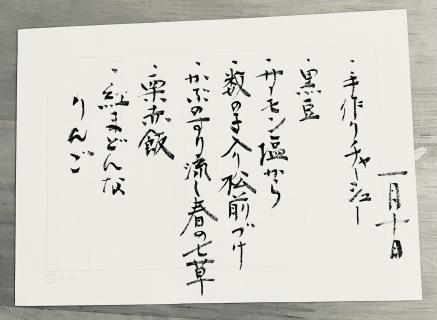 一月十日
・手作りチャーシュー
・黒豆
・サーモン塩から
・数の子入り松前づけ
・かぶのすり流し春の七草
・栗赤飯
・紅まどんな
りんご